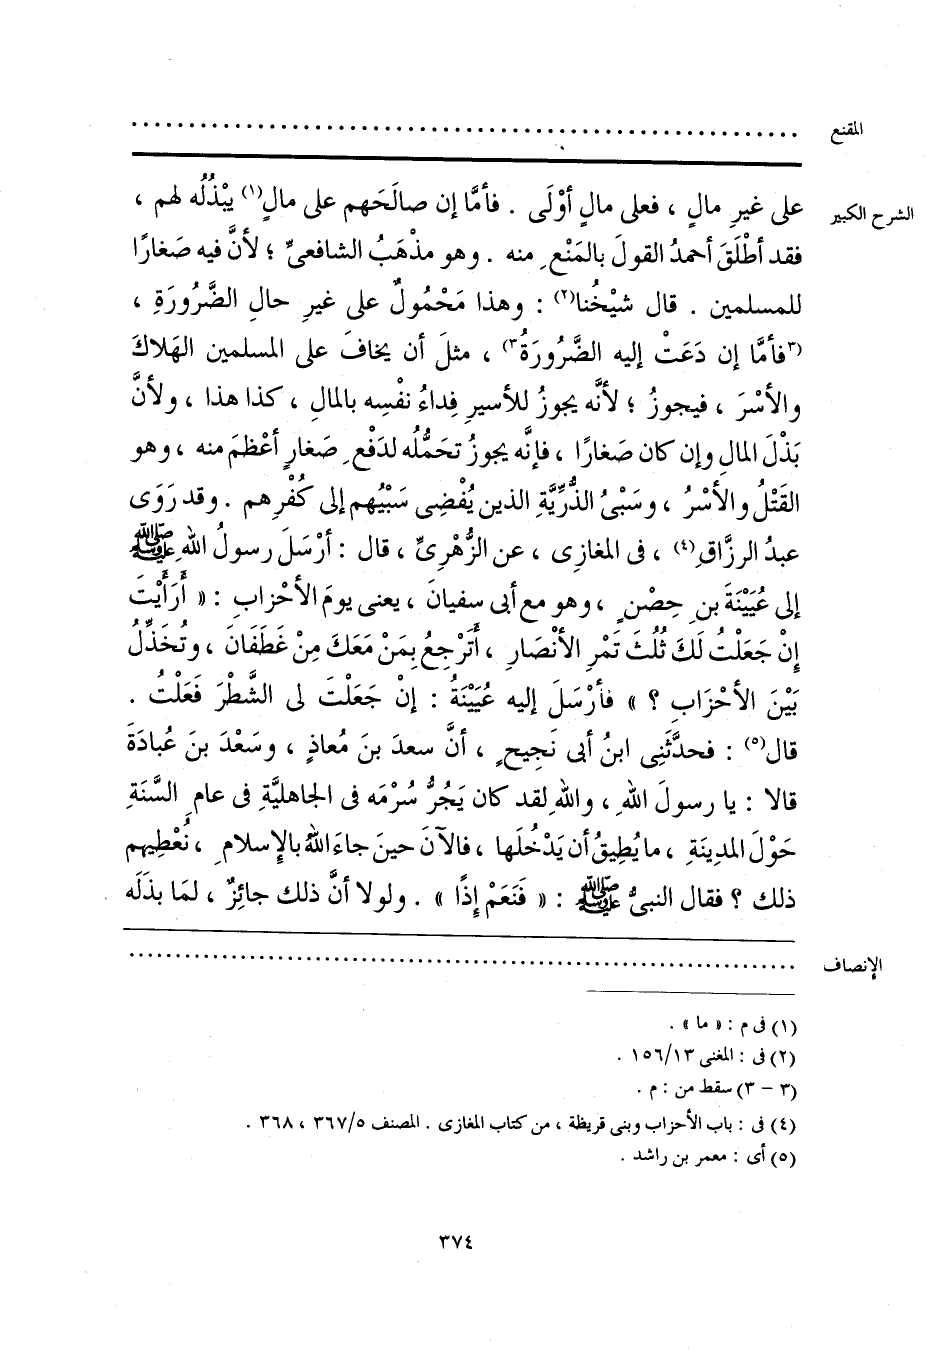 المقنع ........................................................
الشرح الكبير على غيرِ مالٍ ، فعلى مالٍ أوْلَى . فأمَّا إن صالَحَهم على مالٍ(١) يبْذُلُه لهم ،
فقد أطْلَقَ أحمدُ القولَ بالمَنْعِ منه . وهو مذْهَبُ الشافعىِّ ؛ لأنَّ فيه صَغارًا
للمسلمين . قال شيْخُنا(٢) : وهذا مَحْمُولٌ على غيرِ حالِ الضَّرُورَةِ ،
(٣فأمَّا إن دَعَتْ إليه الضَّرُورَةُ٣) ، مثلَ أن يخافَ على المسلمين الهَلاكَ
والأسْرَ ، فيجوزُ ؛ لأنَّه يجوزُ للأسيرِ فِداءُ نفْسِه بالمالِ ، كذا هذا ، ولأنَّ
بَذْلَ المالِ وإن كان صَغارًا ، فإنَّه يجوزُ تحَمُّلُه لدَفْعِ صَغارٍ أعْظمَ منه ، وهو
القَتْلُ والأسْرُ ، وسَبْىُ الذُّرِّيَّةِ الذين يُفْضِى سَبْيُهم إلى كُفْرِهم . وقد رَوَى
عبدُ الرزَّاقِ(٤) ، فى المغازِى ، عن الزُّهْرِىِّ ، قال : أرْسَلَ رسولُ اللهِ ﷺ
إلى عُيَيْنَةَ بنِ حِصْنٍ ، وهو مع أبى سفيانَ ، يعنى يومَ الأحْزابِ : « أَرَأَيْتَ
إنْ جَعَلْتُ لَكَ ثُلُثَ تَمْرِ الأنْصَارِ ، أَتَرْجِعُ بِمَنْ مَعَكَ مِنْ غَطَفَانَ ، وتُخَذِّلُ
بَيْنَ الأحْزَابِ ؟ » فأرْسَلَ إليه عُيَيْنَةُ : إنْ جَعَلْتَ لى الشَّطْرَ فَعَلْتُ .
قال(٥) : فحدَّثَنِى ابنُ أبى نَجِيحٍ ، أنَّ سعدَ بنَ مُعاذٍ ، وسَعْدَ بنَ عُبادَةَ
قالا : يا رسولَ اللهِ ، واللهِ لقد كان يَجُرُّ سُرْمَه فى الجاهليَّةِ فى عامِ السَّنَةِ
حَوْلَ المدِينَةِ ، ما يُطِيقُ أن يَدْخُلَها ، فالآنَ حينَ جاءَ اللهُ بالإِسلامِ ، نُعْطِيهم
ذلك ؟ فقال النبىُّ ﷺ : « فَنَعَمْ إذًا » . ولولا أنَّ ذلك جائِزٌ ، لمَا بذَلَه
الإنصاف ........................................................
(١) فى م : « ما » .
(٢) فى : المغنى ١٥٦/١٣ .
(٣ - ٣) سقط من : م .
(٤) فى : باب الأحزاب وبنى قريظة ، من كتاب المغازى . المصنف ٣٦٧/٥ ، ٣٦٨ .
(٥) أى : معمر بن راشد .
٣٧٤